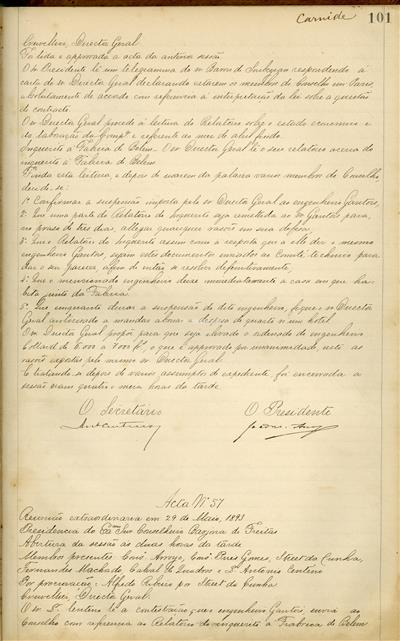 Carnide 101
Cruvellier, Director Geral
Foi lida e approvada a acta da anterior sessão
O Snr. Presidente lê um telegramma do snr Barão de respondendo á
carta do snr Director Geral declarando estarem os membros do Conselho em Paris,
absolutamente de accordo com referencia á interpretação da lei sobre a questão
do contracto.
O Snr Director Geral procede á leitura do Relatorio sobre o estado economico e
da laboração da Comp.ª e referente ao mez de abril findo.
Inquerito á Fabrica de Belem. O snr Director Geral lê o seu relatorio acerca do
inquerito á Fabrica de Belem
Finda esta leitura, e depois de usarem da palavra varios membros do Conselho,
decide-se:
1º Confirmar a suspensão imposta pelo snr Director Geral ao engenheiro Gantès,
2º Que uma parte do Relatorio do Inquerito seja remettida ao snr Gantès para,
no praso de tres dias, allegar quaesquer razões em sua defeza,
3º Que o Relatorio do Inquerito assim como a resposta que a elle der o mesmo
engenheiro Gantès, sejam estes documentos enviados ao Comité technico para
dar o seu parecer afim de então se resolver definitivamente,
4º Que o mencionado engenheiro deixe immediatamente a casa em que ha-
bita junto da Fabrica
5º Que emquanto durar a suspensão do dito engenheiro, fique o snr Director
Geral autorisado a mandar abonar a despeza do quarto n'um hotel
O snr Director Geral propõe para que seja elevado o ordenado do engenheiro
Collard de 6:000 a 7:000 f.ˢ, o que é approvado por unanimidade, visto as
razões expostas pelo mesmo snr Director Geral.
E tratando-se depois de varios assumptos do expediente foi encerrada a
sessão eram quatro e meia horas da tarde
O Secretario O Presidente
Acta Nº 57
Reunião extraordinaria em 29 de Maio, 1893
Presidencia do Exmo Snr Conselheiro Pedroza de Freitas
Abertura da sessão ás duas horas da tarde
Membros presentes, Consº Arroyo, Consº Pires Gomes, Street da Cunha,
Fernandes Machado, Cabral de e Dr Antonio Centeno
Por procuração: Alfredo Ribeiro por Street da Cunha
Cruvellier, Director Geral.
O snr Dr Centeno lê a contestação que o engenheiro Gantès envia ao
Conselho com referencia ao Relatorio do inquerito á Fabrica de Belem